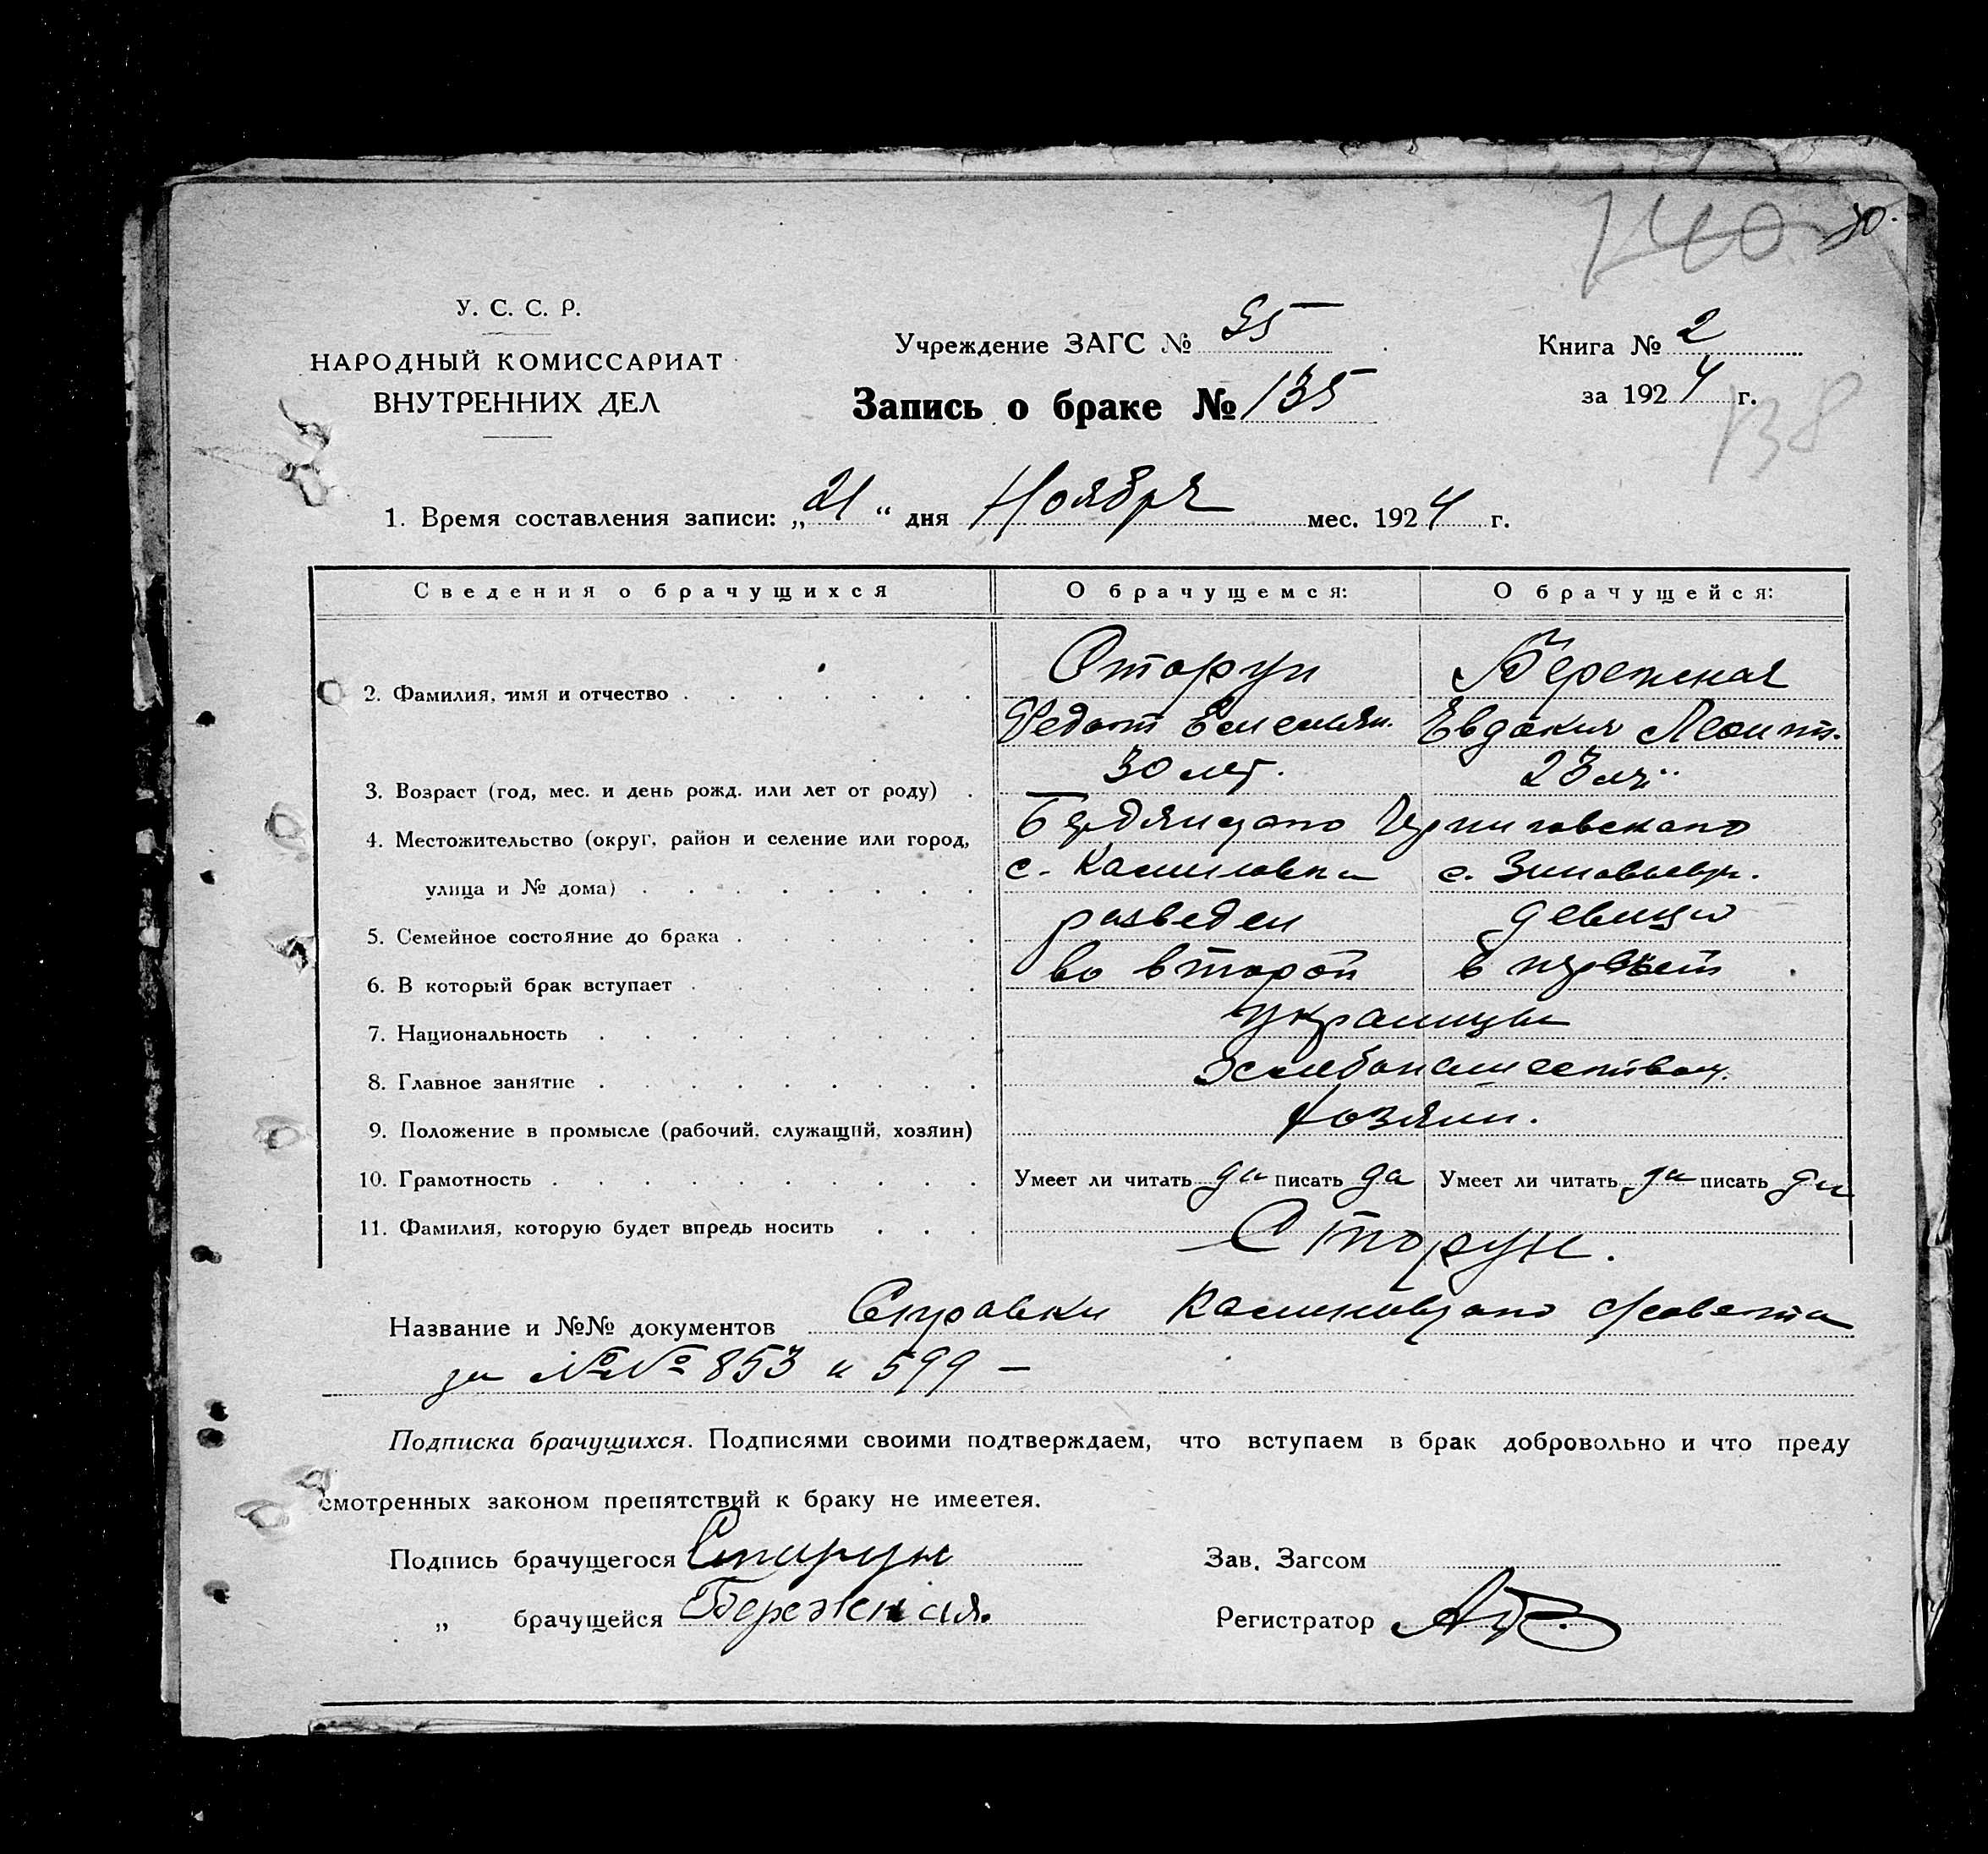 140 70.
У. С. С. Р.
НАРОДНЫЙ КОМИССАРИАТ
ВНУТРЕННИХ ДЕЛ
Учреждение ЗАГС № 35
Запись о браке № 135
Книга № 2
за 1924 г.
138
1. Время составления записи: „21“ дня Ноября мес. 1924 г.
Сведения о брачущихся О брачущемся: О брачущейся:
2. Фамилия, имя и отчество Сторун Бережная
Федот Емельян. Евдокия Леонт.
3. Возраст (год, мес. и день рожд. или лет от роду) 30 лет. 23 л.
4. Местожительство (округ, район и селение или город, Бердянцого Черниговского
улица и № дома) с. с. Зиновьевк.
5. Семейное состояние до брака разведен девица
6. В который брак вступает во второй в первый
7. Национальность украинцы
8. Главное занятие хлебопашеством.
9. Положение в промысле (рабочий, служащий, хозяин) хозяин.
10. Грамотность Умеет ли читать да писать да Умеет ли читать да писать да
11. Фамилия, которую будет впредь носить Сторун.
Название и №№ документов Справки с/совета
за №№ 853 и 599 —
Подписка брачущихся. Подписями своими подтверждаем, что вступаем в брак добровольно и что преду
смотренных законом препятствий к браку не имеетея.
Подпись брачущегося Сторун Зав. Загсом
„ брачущейся Бережная. Регистратор